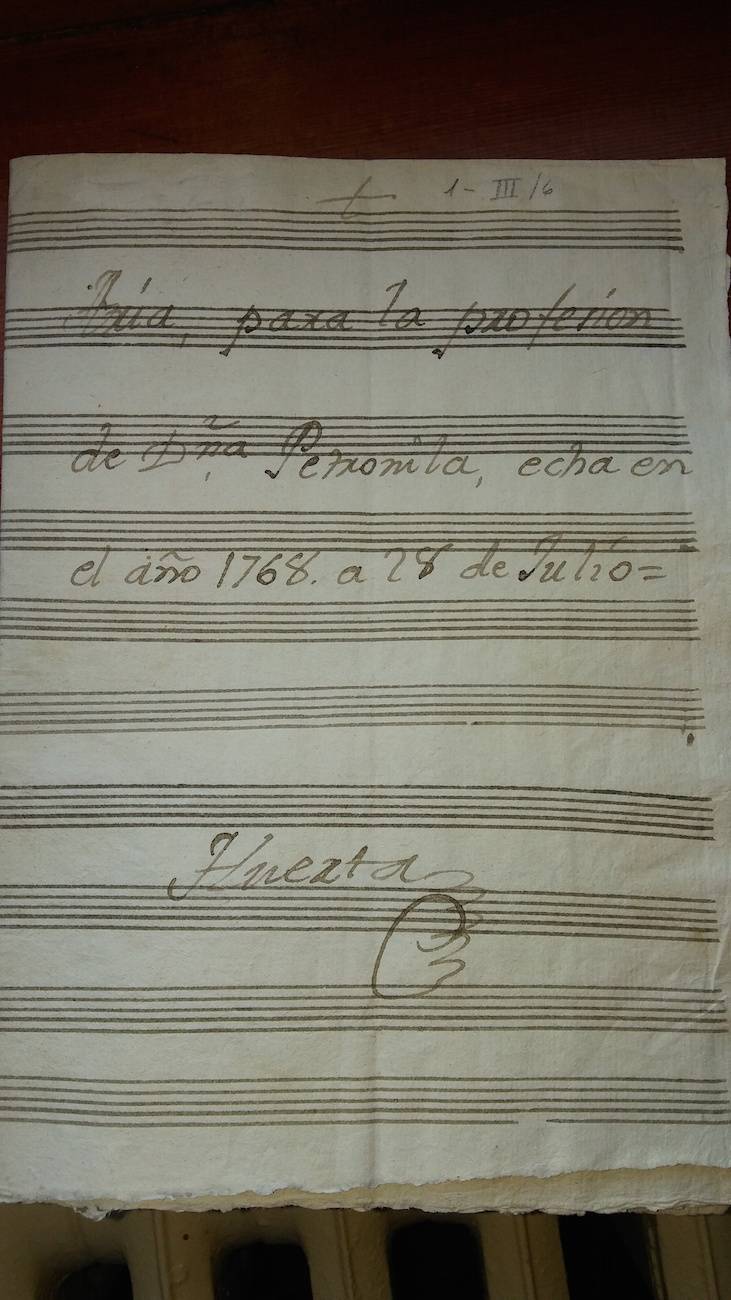 1 - III / 6
Aria, para la profesion
de Dña Petronila, echa en
el año 1768. a 28 de Julio =
Huerta